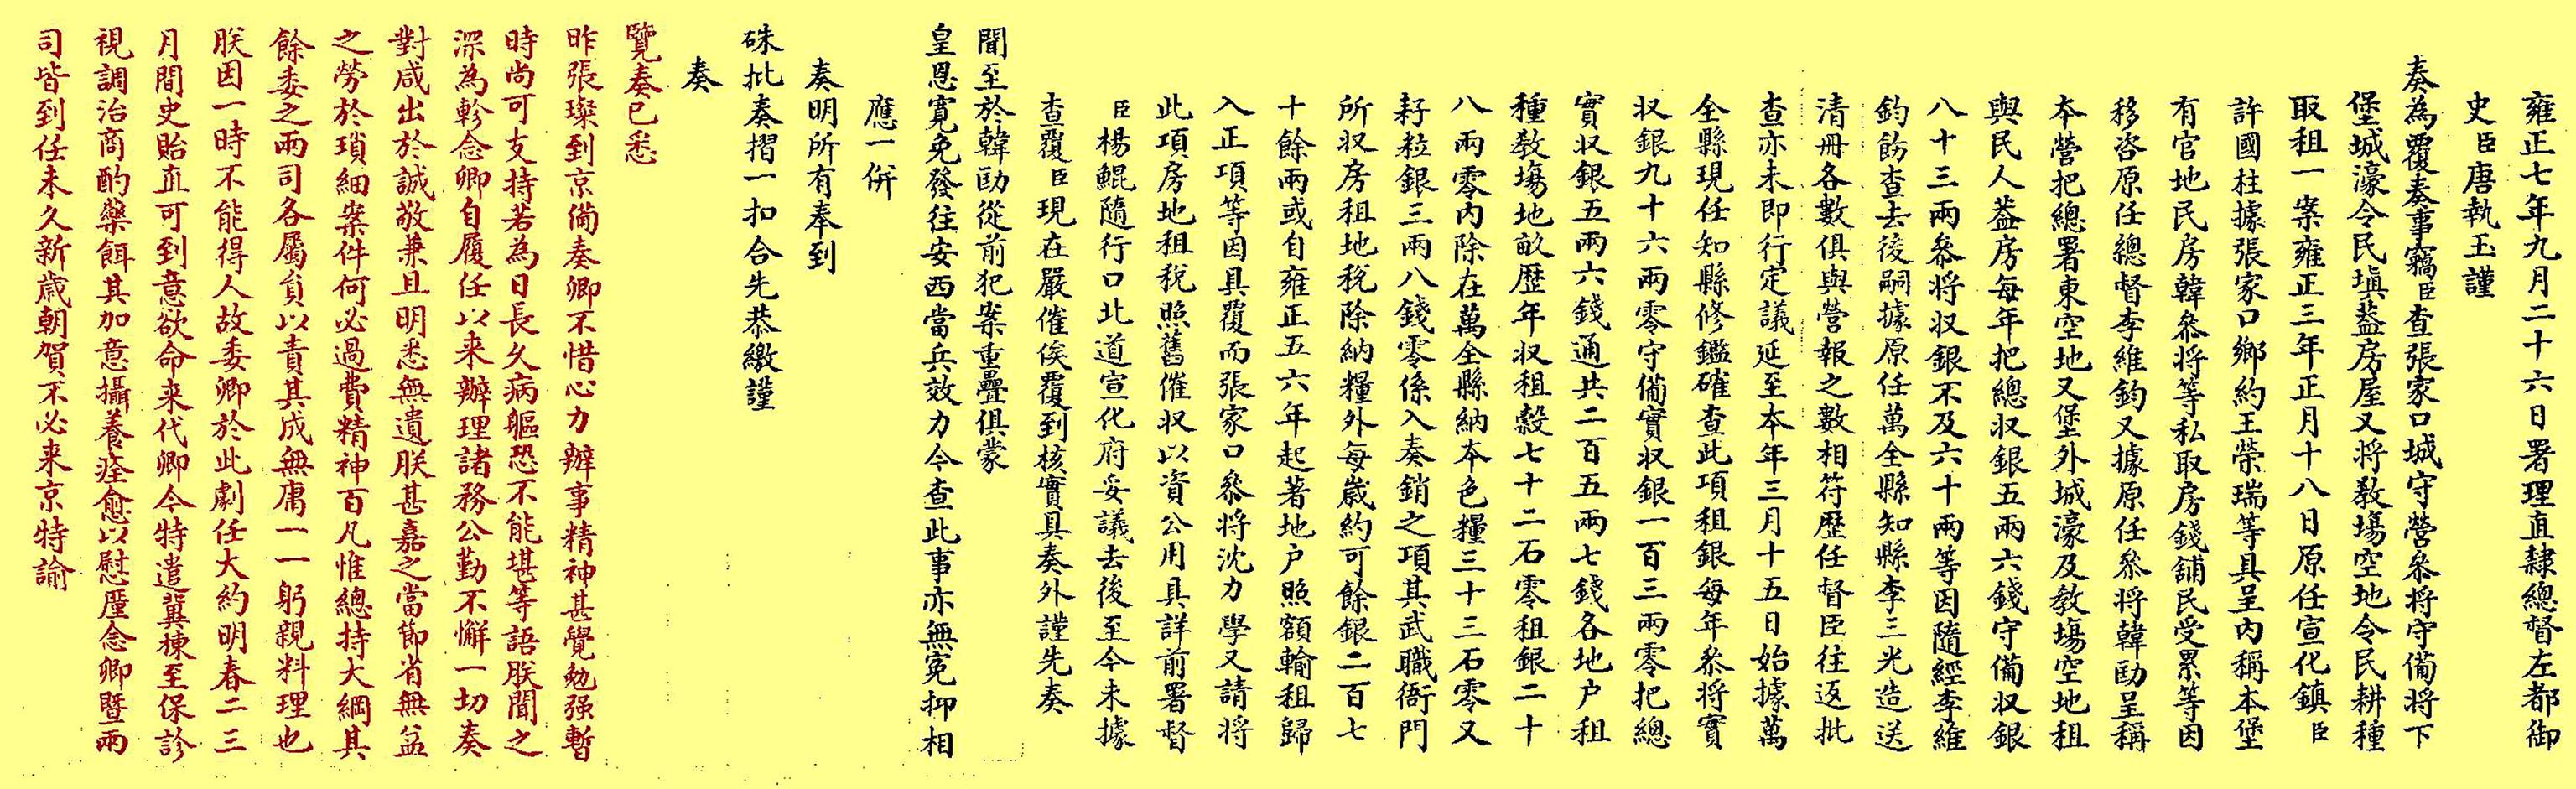 雍正七年九月二十六日署理直隸總督左都御
史臣唐執玉謹
奏為覆奏事竊臣查張家口城守營叅將守備將下
堡城濠令民塡蓋房屋又將教塲空地令民耕種
取租一案雍正三年正月十八日原任宣化鎮臣
許國柱據張家口鄉約王榮瑞等具呈內稱本堡
有官地民房韓叅將等私取房錢舖民受累等因
移咨原任總督李維鈞又據原任叅將韓勛呈稱
本營把總署東空地又堡外城濠及教塲空地租
與民人葢房每年把總収銀五兩六錢守備収銀
八十三兩叅將収銀不及六十兩等因隨經李維
鈞飭查去後嗣據原任萬全縣知縣李三光造送
清冊各數俱與營報之數相符歷任督臣往返批
查亦未即行定議延至本年三月十五日始據萬
全縣現任知縣修鑑確查此項租銀每年叅將實
収銀九十六兩零守備實収銀一百三兩零把總
實収銀五兩六錢通共二百五兩七錢各地户租
種教塲地畝歷年収租穀七十二石零租銀二十
八兩零內除在萬全縣納本色糧三十三石零又
籽粒銀三兩八錢零係入奏銷之項其武職衙門
所収房租地稅除納糧外每嵗約可餘銀二百七
十餘兩或自雍正五六年起著地户照額輸租歸
入正項等因具覆而張家口叅將沈力學又請將
此項房地租稅照舊催収以資公用具詳前署督
臣楊鯤隨行口北道宣化府妥議去後至今未據
查覆臣現在嚴催俟覆到核實具奏外謹先奏
聞至於韓勛從前犯案重疊俱蒙
皇恩寬免發往安西當兵效力今查此事亦無寃抑相
應一併
奏明所有奉到
硃批奏摺一扣合先恭繳謹
奏
覽奏已悉
昨張璨到京俻奏卿不惜心力辦事精神甚覺勉强暫
時尚可支持若為日長久病軀恐不能堪等語朕聞之
深為軫念卿自履任以来辦理諸務公勤不懈一切奏
對咸出於誠敬兼且明悉無遺朕甚嘉之當節省無益
之勞於瑣細案件何必過費精神百凡惟總持大綱其
餘委之兩司各屬負以責其成無庸一一躬親料理也
朕因一時不能得人故委卿於此劇任大約明春二三
月間史貽直可到意欲命来代卿今特遣冀棟至保診
視調治商酌藥餌其加意攝養痊愈以慰廑念卿暨兩
司皆到任未久新歲朝賀不必来京特諭